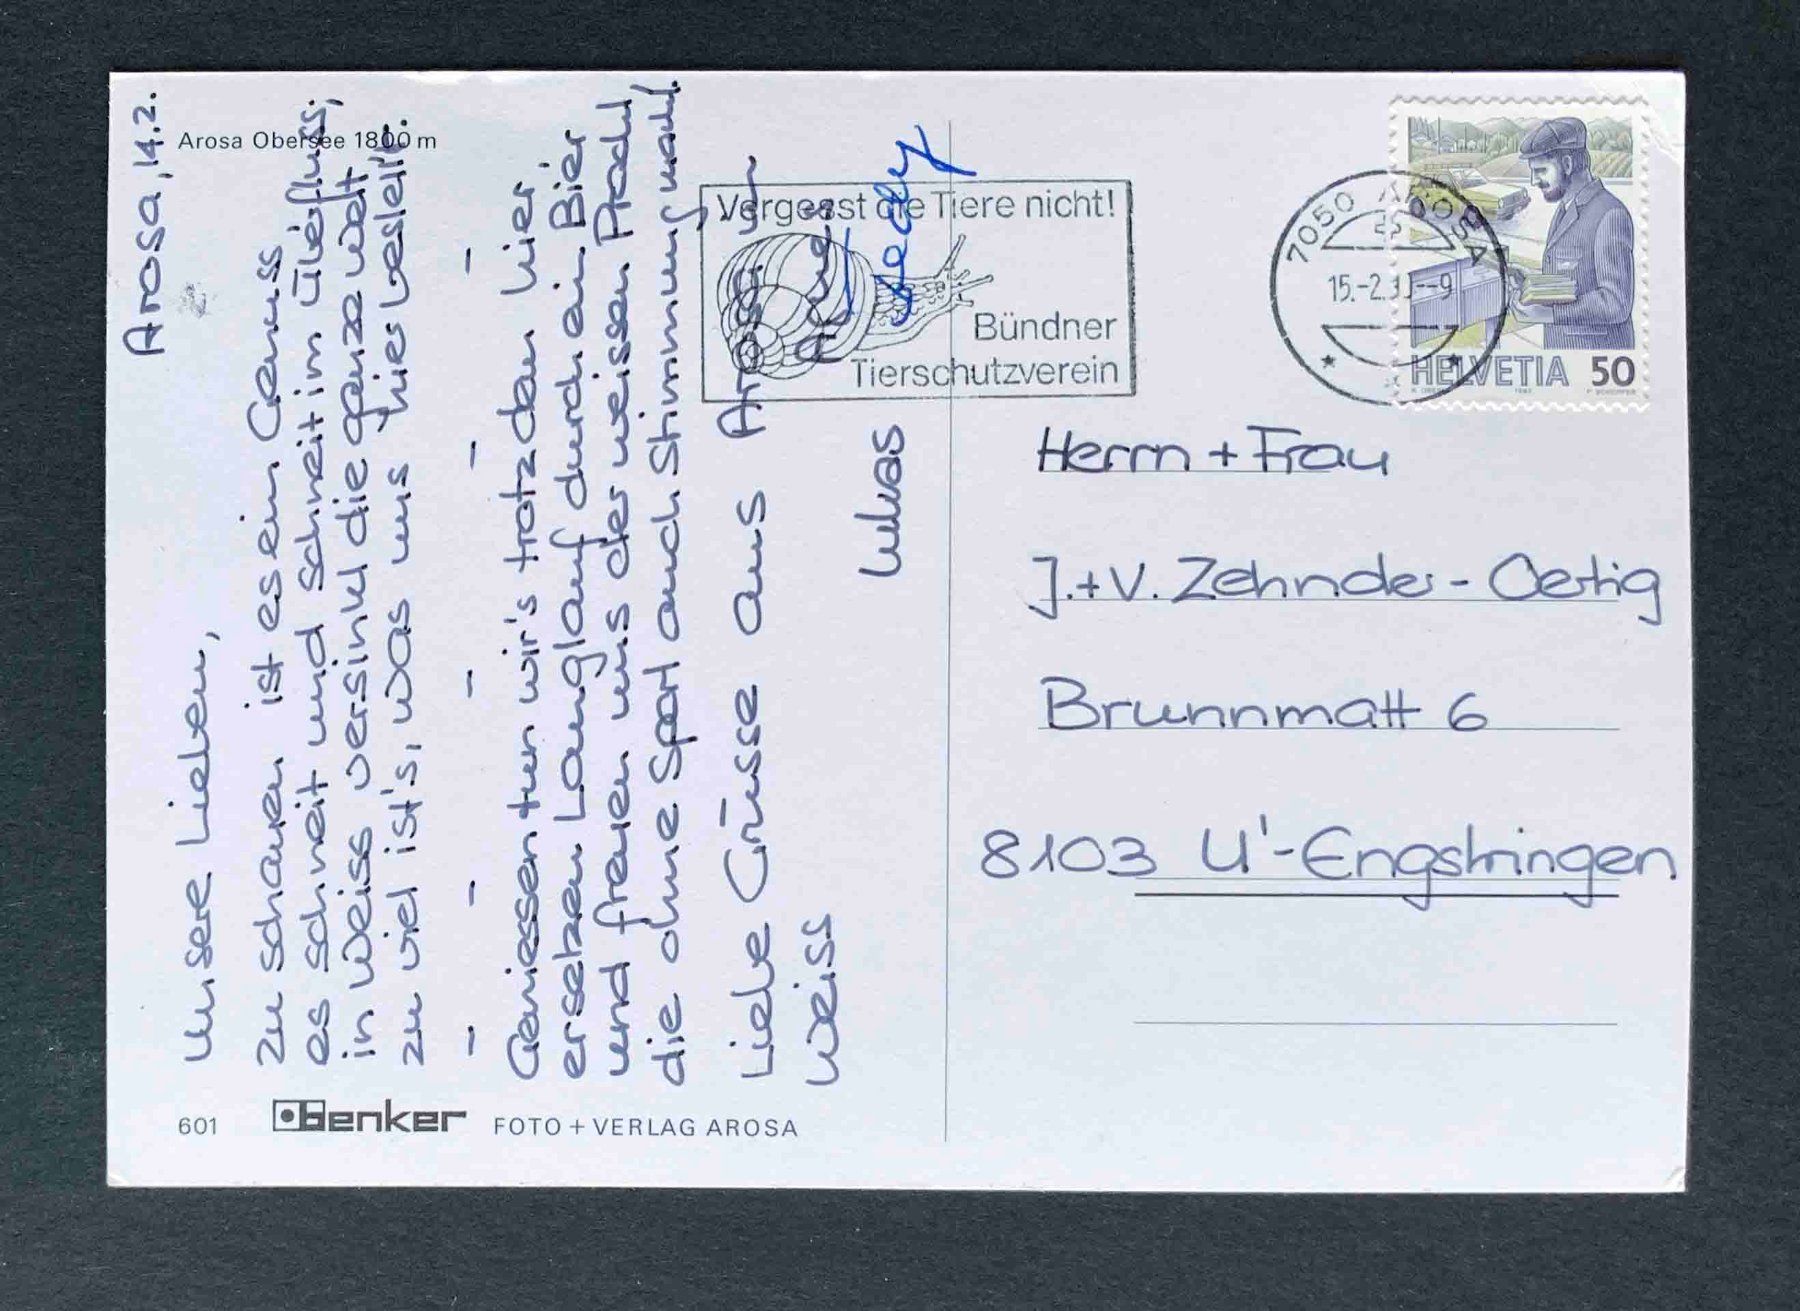 Arosa Obersee 1800 m
Arosa, 14.2.
Unsere Lieben,
zu schauen ist es ein Genuss
es schneit und schneit im Überfluss;
in Weiss versinkt die ganze Welt
zu viel ist's, was uns hier bestellt.
– – – – – –
Geniessen tun wir's trotzdem hier
ersetzen Langlauf durch ein Bier
und freuen uns der weissen Pracht,
die ohne Sport auch Stimmung macht.
Liebe Grüsse aus Arosa in
Weiss
Lukas
Vergesst die Tiere nicht!
Bündner
Tierschutzverein
7050 AROSA
15.-2.90--9
HELVETIA 50
Herrn + Frau
J.+V. Zehnder - Oertig
Brunnmatt 6
8103 U'-Engstringen
601 benker FOTO + VERLAG AROSA